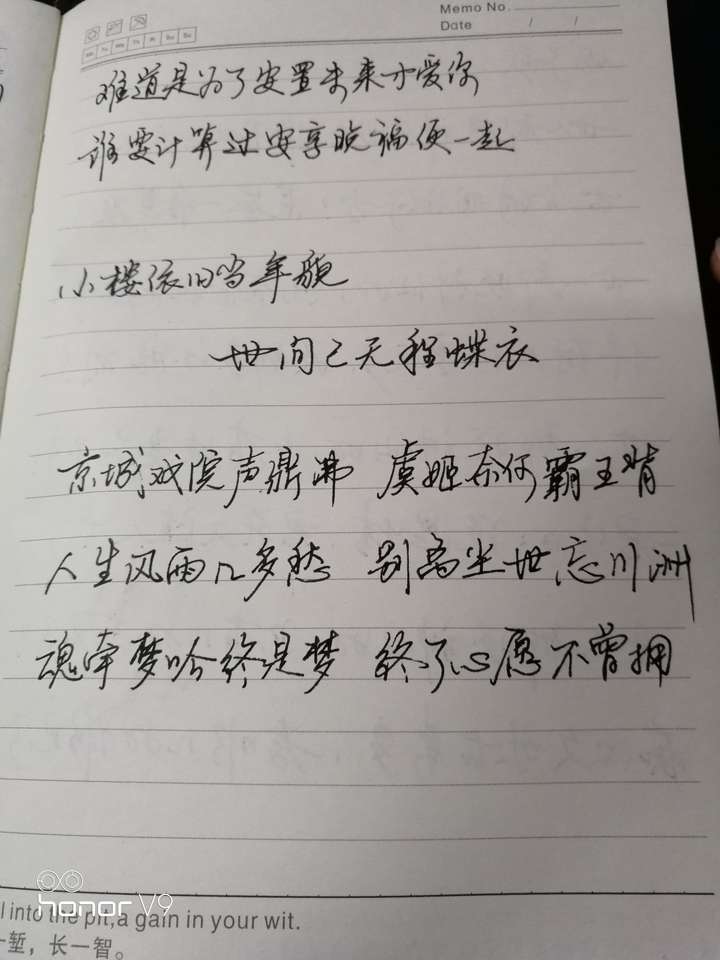 Memo No.
Date / /
Mo Tu We Th Fr Sa Su
难道是为了安置未来才爱你
谁要计算过安享晚福便一起
小楼依旧当年貌
世间已无程蝶衣
京城戏院声鼎沸 虞姬奈何霸王背
人生风雨几多愁 别离尘世忘川洲
魂牵梦吟终是梦 终了心愿不曾拥
l into the pit,a gain in your wit.
一堑，长一智。
honor V9